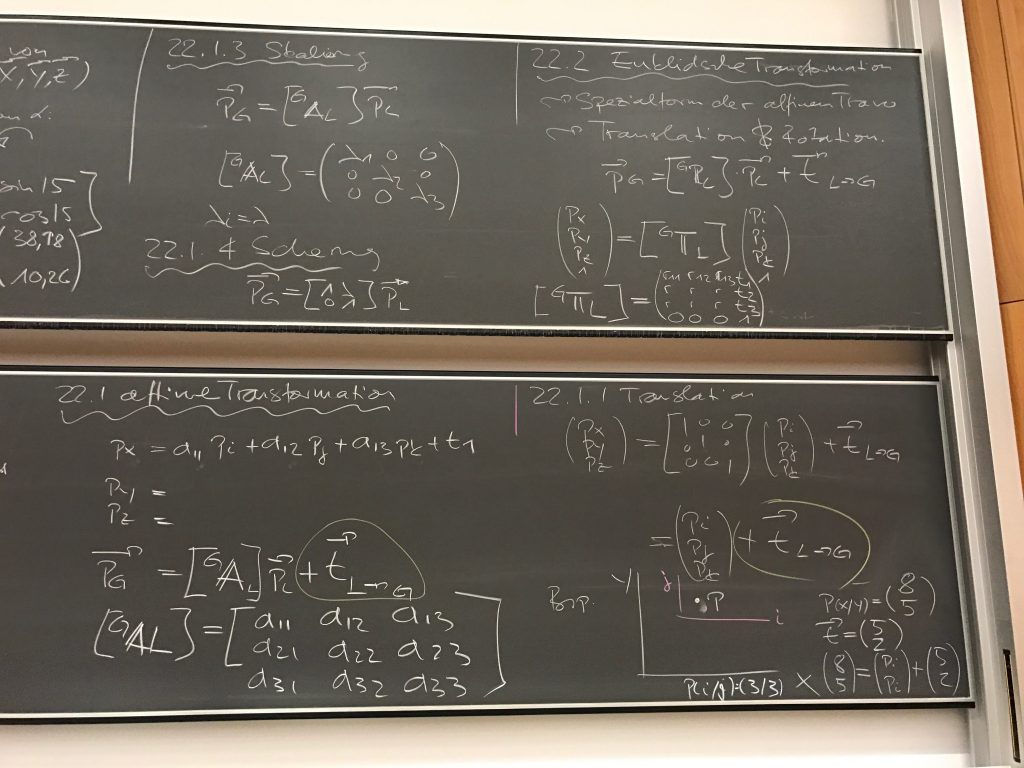 von
X, Y, Z)
sin 15
cos 15
38,78
10,26)
22.1.3 Skalierung
P_G = [^G A_L] P_L
[^G A_L] = (λ1 0 0
0 λ2 0
0 0 λ3)
λi = λ
22.1.4 Scherung
P_G = [1 λ
0 1] P_L
22.2 Euklidsche Transformation
Spezialform der affinen Trans
Translation & Rotation.
P_G = [^G R_L] · P_L + t L→G
(Px
Py
Pz
1) = [^G T_L] (Pi
Pj
Pk
1)
[^G T_L] = (r11 r12 r13 t1
r r r t2
r r r t3
0 0 0 1)
22.1 affine Transformation
Px = a11 Pi + a12 Pj + a13 Pk + t1
Py =
Pz =
P_G = [^G A_L] P_L + t L→G
[^G A_L] = [a11 a12 a13
a21 a22 a23
a31 a32 a33]
22.1.1 Translation
(Px
Py
Pz) = [1 0 0
0 1 0
0 0 1] (Pi
Pj
Pk) + t L→G
= (Pi
Pj
Pk) + t L→G
Bsp.
Y
j
P
i
X
P(i/j)=(3/3)
P(X/Y) = (8
5)
t = (5
2)
(8
5) = (Pi
Pi) + (5
2)